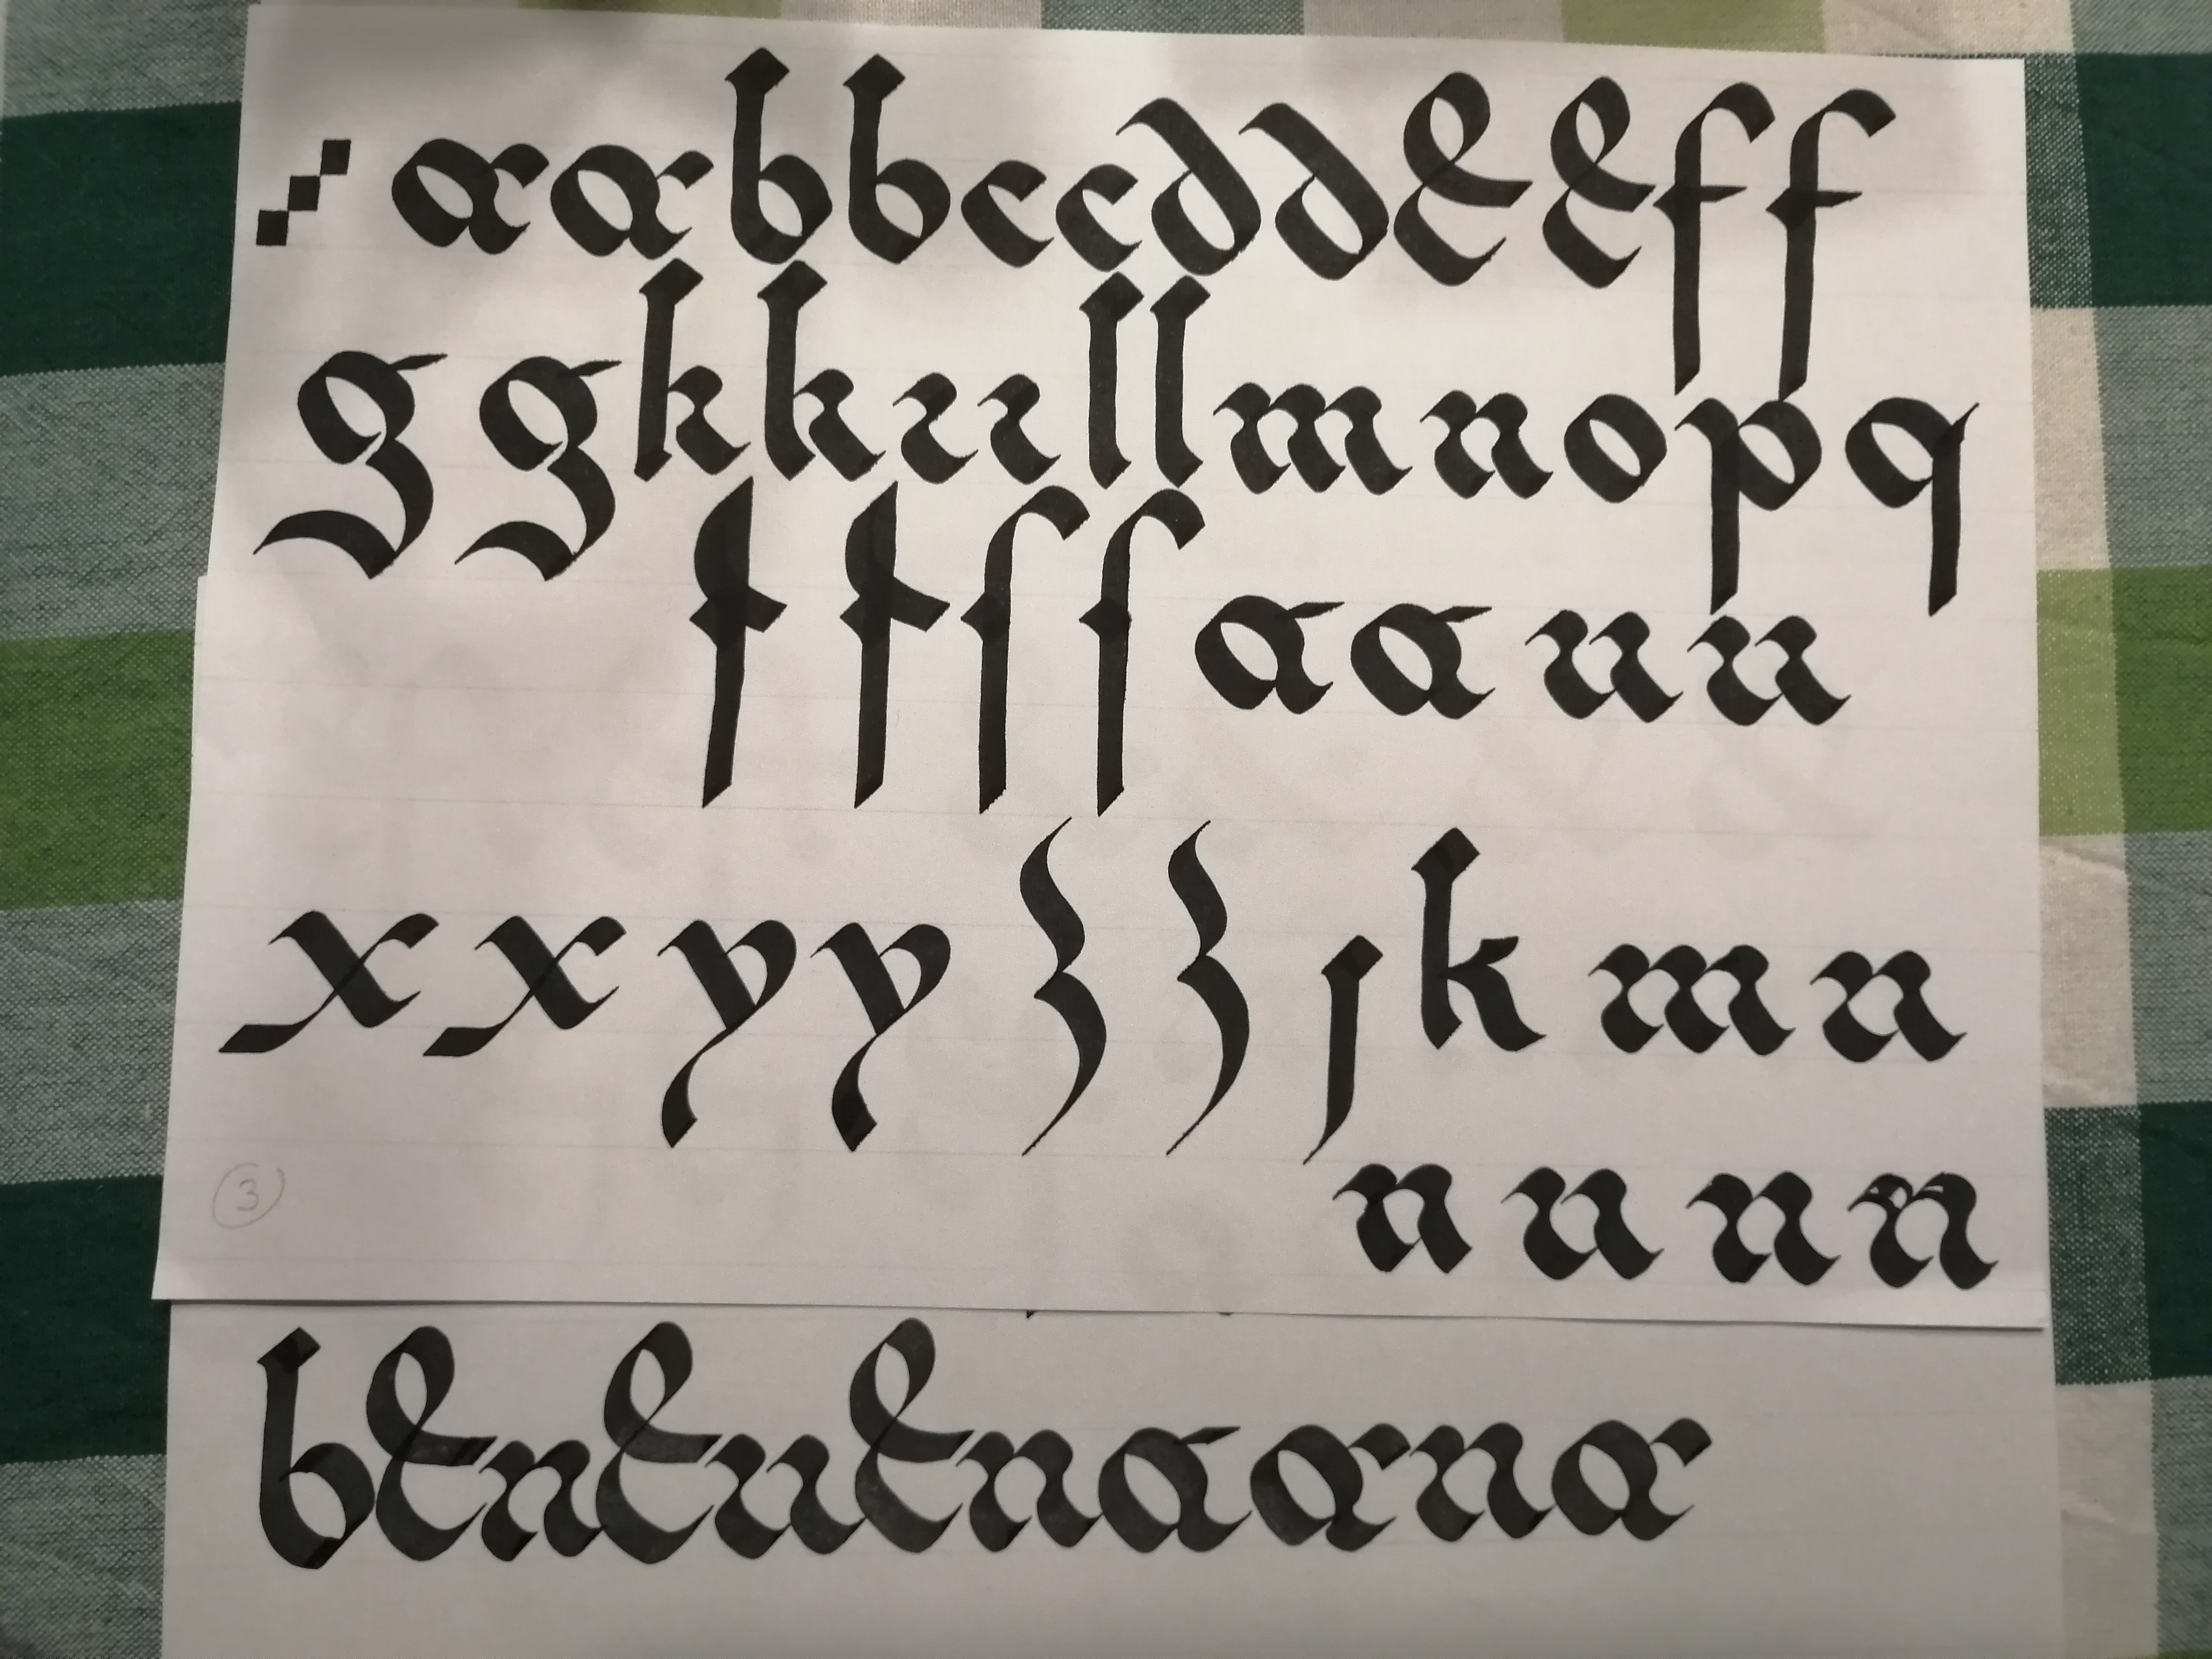 aabbccddeeff
ggkkııllmnopq
ttſſaann
xxyyzzjkmn
3
nnnn
benenenaana